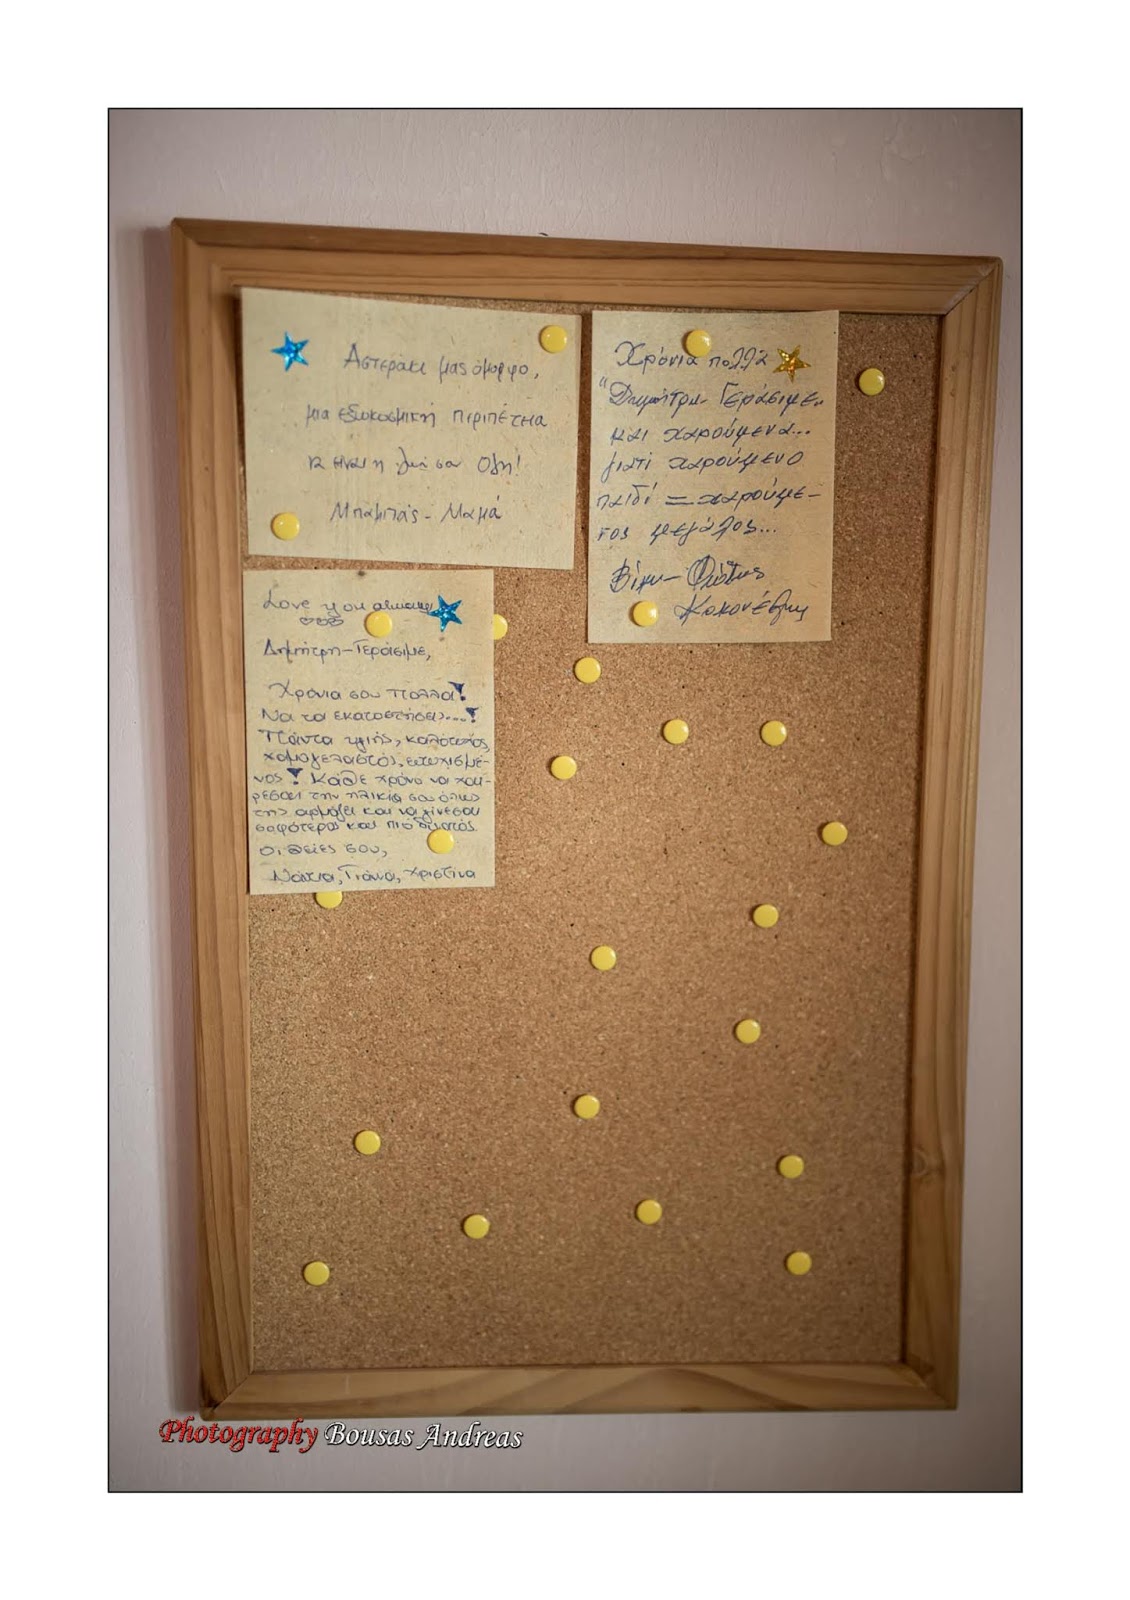 Αστεράκι μας όμορφο,
μια εξωκοσμική περιπέτεια
να είναι η ζωή σου όλη!
Μπαμπάς - Μαμά
Χρόνια πολλά
"Δημήτρη - Γεράσιμε"
και χαρούμενα...
γιατί χαρούμενο
παιδί = χαρούμε-
νος μεγάλος...
Βίκυ - Φώτης
Love you always
Δημήτρη-Γεράσιμε,
Χρόνια σου πολλά!
Να τα εκατοστήσεις...!
Πάντα υγιής, καλότυχος,
χαμογελαστός, ευτυχισμέ-
νος! Κάθε χρόνο να χαί-
ρεσαι την ηλικία σου όπως
της αρμόζει και να γίνεσαι
σοφότερος και πιο δυνατός.
Οι θείες σου,
Νάντια, Γιάννα, Χριστίνα
Photography Bousas Andreas